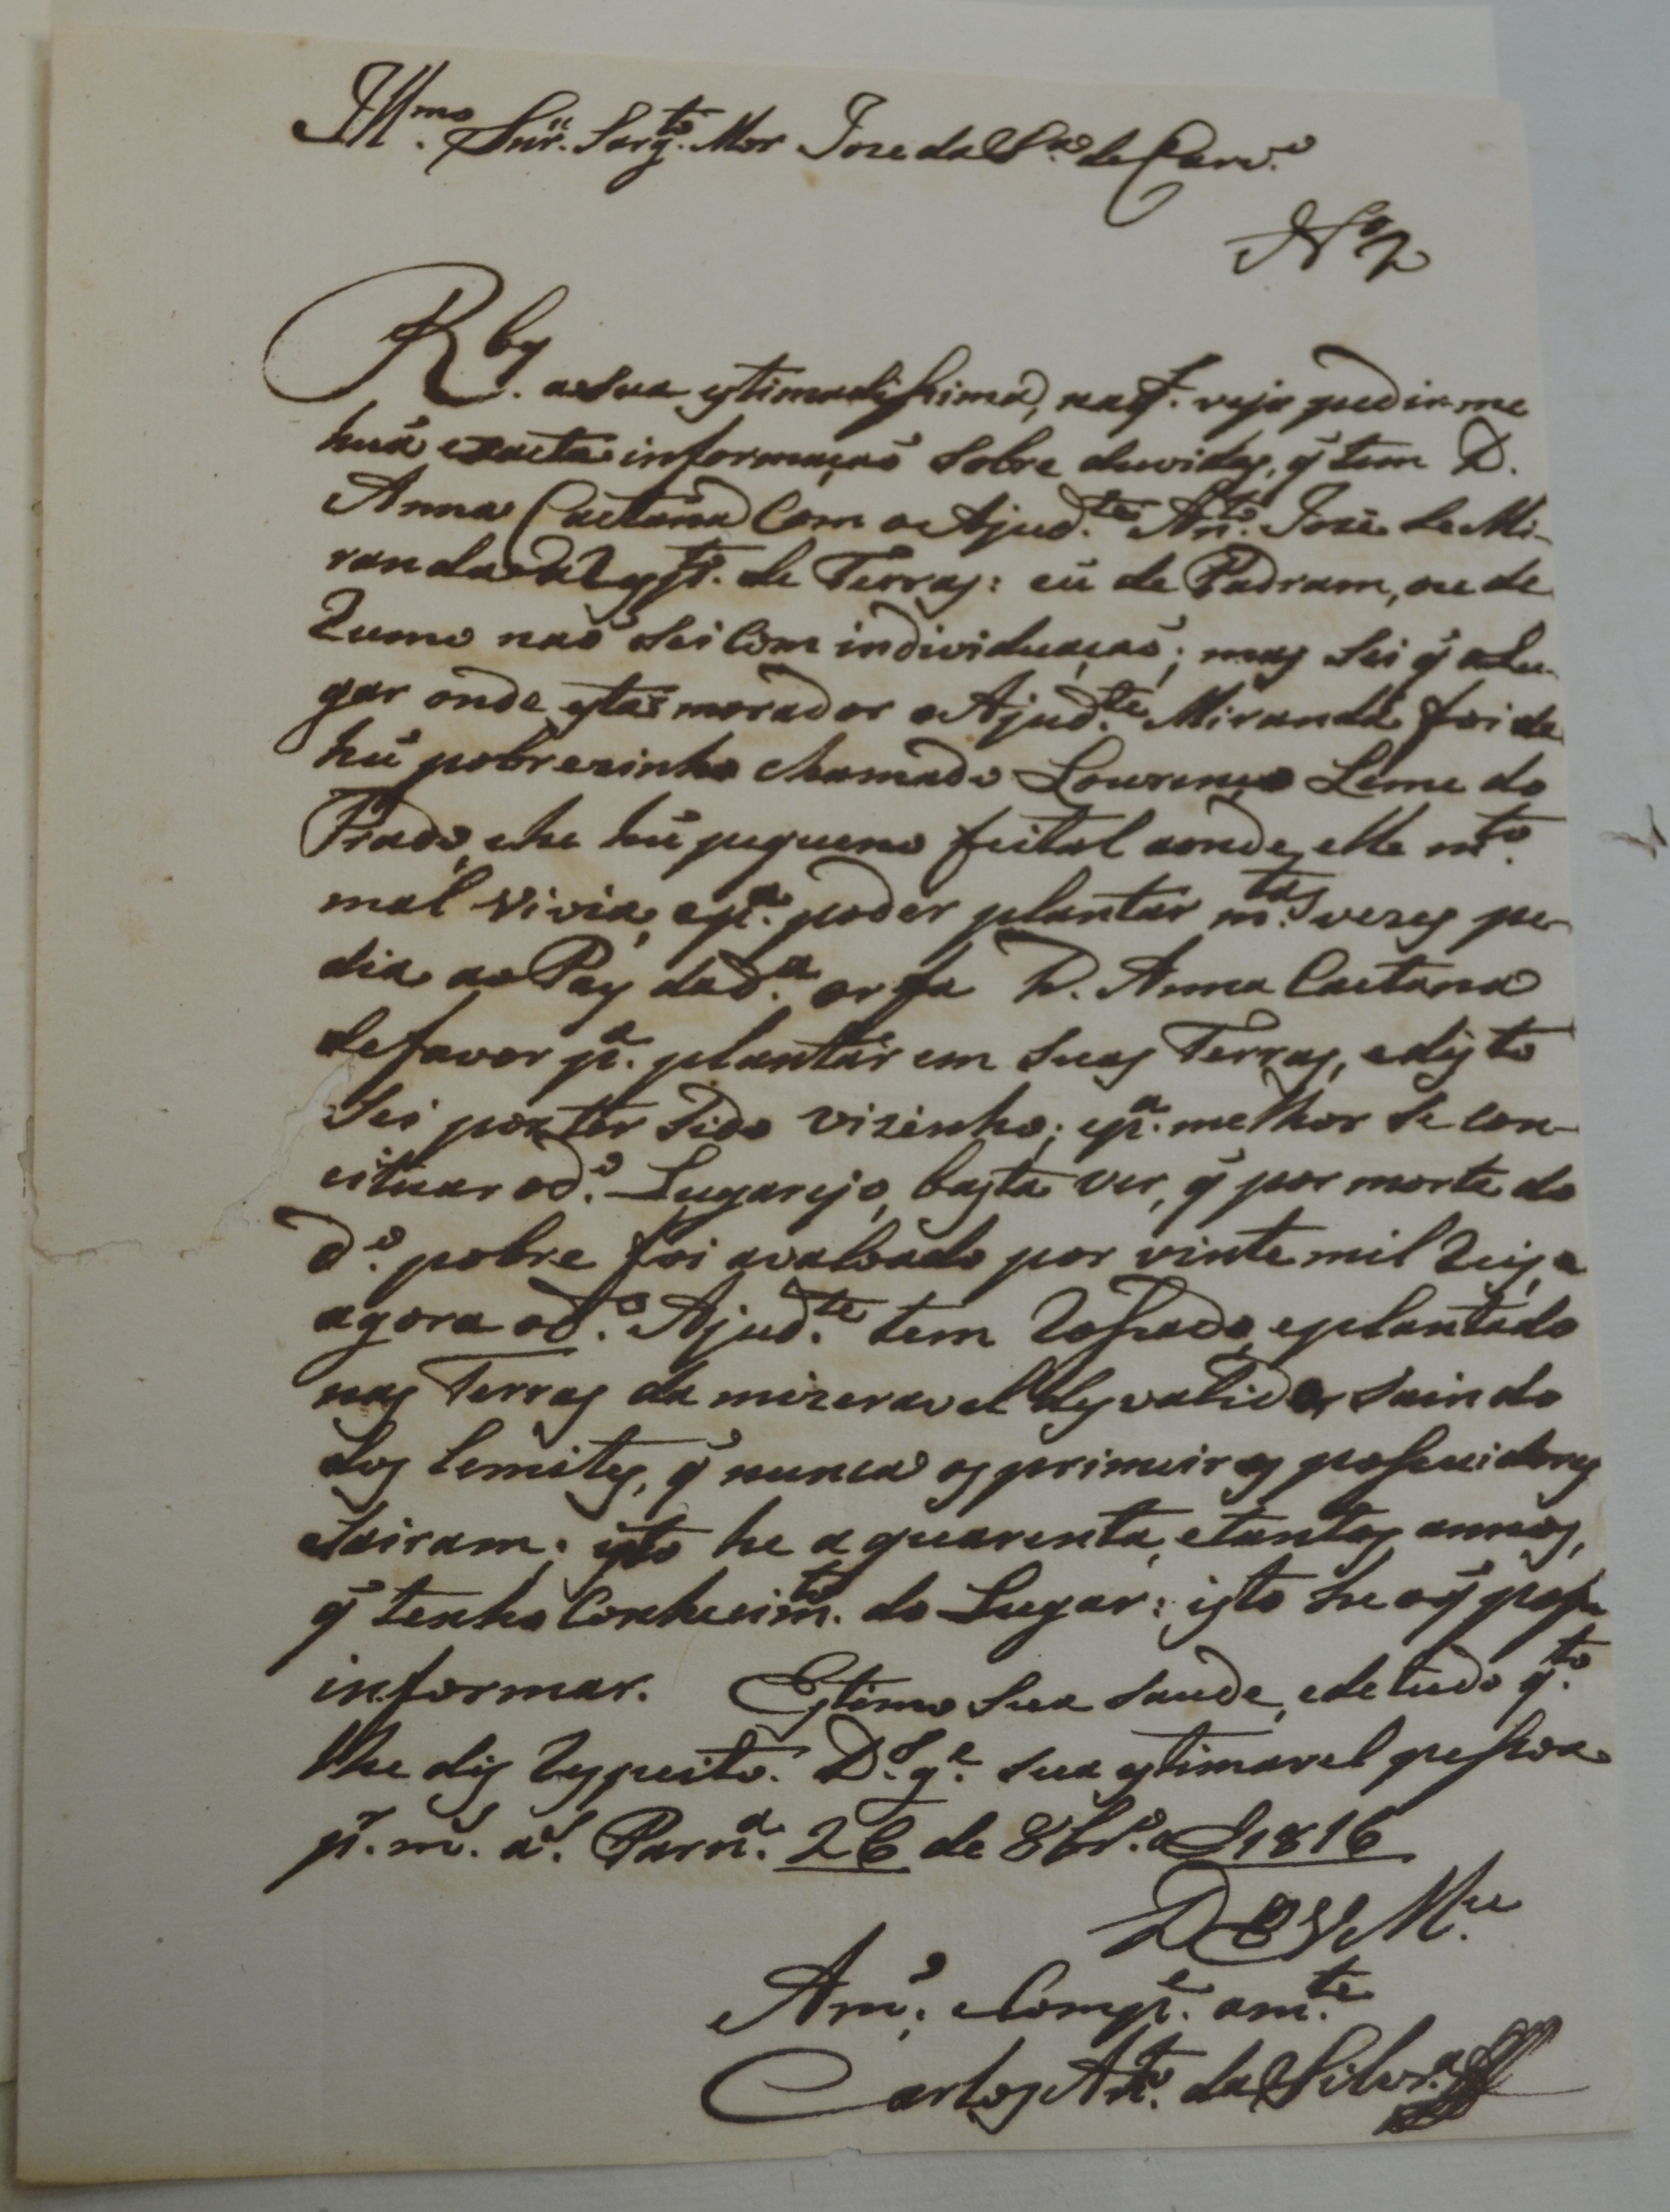 Illmo. Snr. Sargto. Mor Joze da Sa. de Carvo.
No 2
Rby. a sua estimadissima, na q. vejo pedir-me
huã exacta informaçaõ sobre duvidas, q̃ tem D.
Anna Caetana Com o Ajudte. Anto. José de Mi-
randa a Respto. de Terras: eu de Padram, ou de
Rumo naõ sei Com individuaçaõ; mas sei q̃ o Lu-
gar onde está morador o Ajudte. Miranda foi de
hũ pobrezinho chamado Lourenço Leme do
Prado, e he hũ pequeno feital aonde elle mto.
mal vivia, e pa. poder plantar mtas. vezes pe-
dia ao Pay da da. orfa D. Anna Caetana
de favor pa. plantar em suas Terras, e disto
sei por ter sido vizinho; e pa. melhor se con-
ceituar o do. Lugarejo, basta ver, q̃ por morte do
do. pobre foi avaluado por vinte mil Reis, e
agora o do. Ajudte. tem Rossado, e plantado
nas Terras da mizeravel desvalida, saindo
dos Lemites, q̃ nunca os primeiros possuidores
sairam; isto he a quarenta, e tantos annos,
q̃ tenho Conhecimto. do Lugar: isto he o q̃ posso
informar. Estimo sua saude, e de tudo qto.
lhe diz Respeito. Ds. ge. sua estimavel pessoa
pr. ms. as. Parna. 26 de 8bro. de 1816
De V Mce.
Amo. e Compe. amte.
Carlos Anto. da Silva